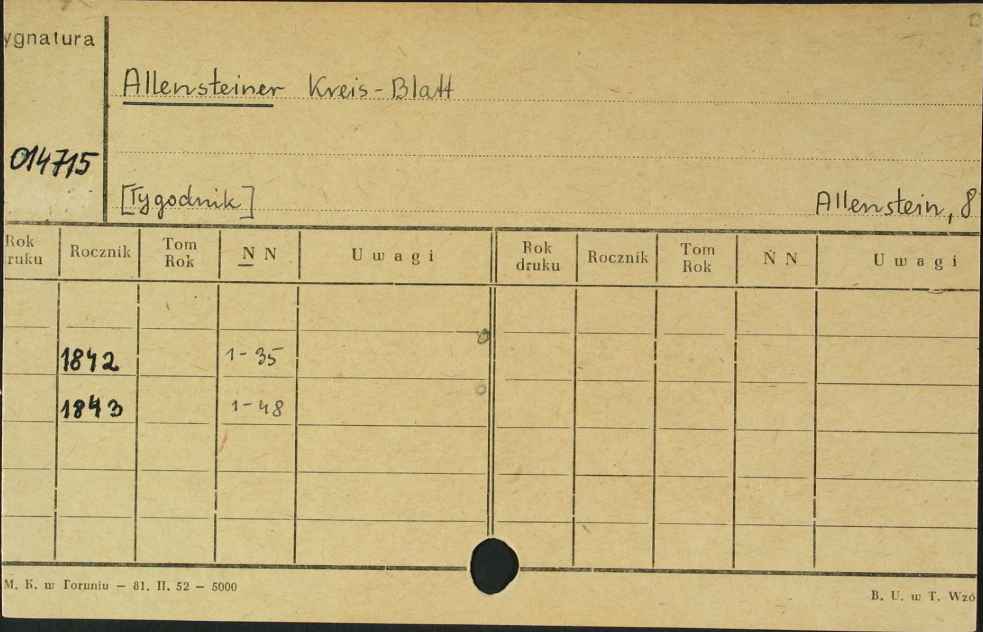 ygnatura
Allensteiner Kreis-Blatt
014715
[Tygodnik]
Allenstein, 8
Rok ruku Rocznik Tom Rok N N Uwagi Rok druku Rocznik Tom Rok N N Uwagi
1842 1-35
1843 1-48
M. K. w Toruniu — 81. II. 52 — 5000
B. U. w T. Wzó